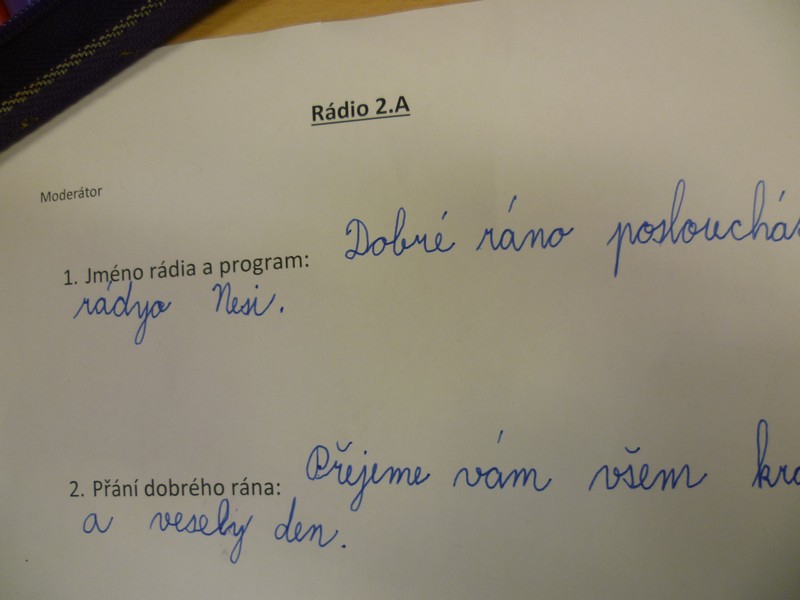 Rádio 2.A
Moderátor
1. Jméno rádia a program: Dobré ráno poslouchá
rádyo Nesi.
2. Přání dobrého rána: Přejeme vám všem
a vesely den.